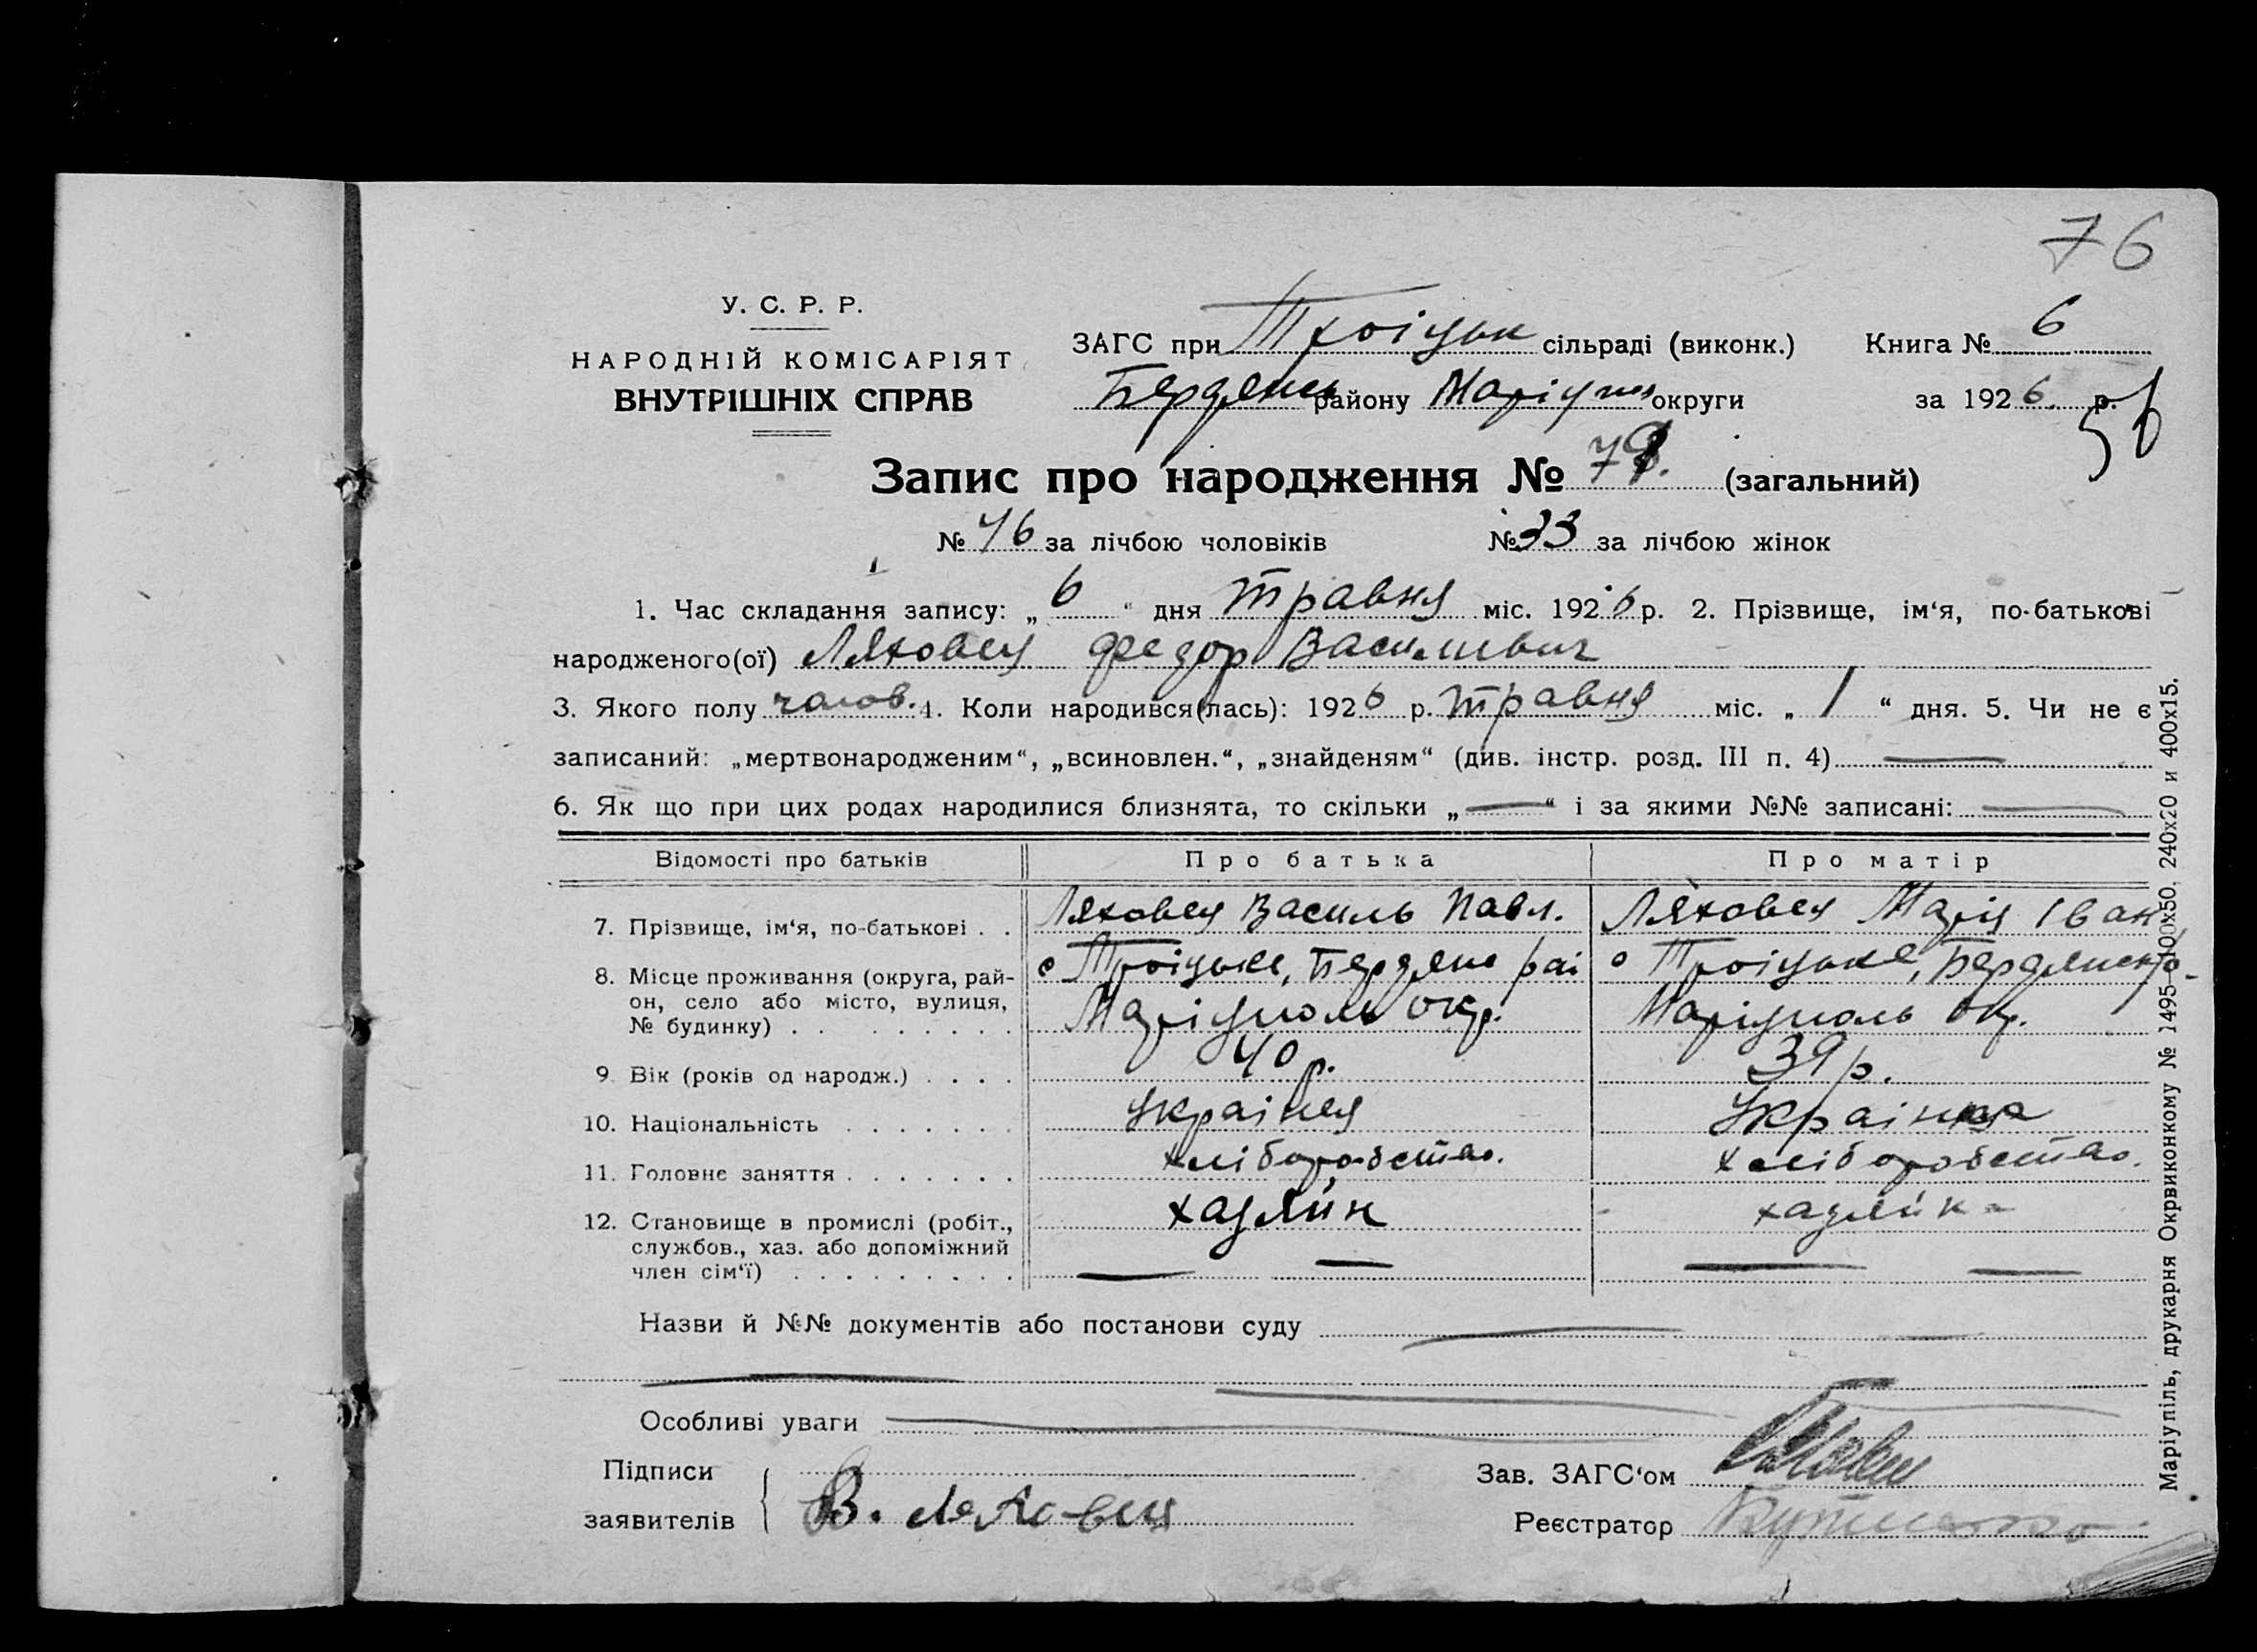 76
У. С. Р. Р.
НАРОДНІЙ КОМІСАРІЯТ
ВНУТРІШНІХ СПРАВ
ЗАГС при Троіцьк сільраді (виконк.) Книга № 6
Бердянськ району Маріуп округи за 1926 р.
Запис про народження № (загальний)
№ 46 за лічбою чоловіків № 33 за лічбою жінок
1. Час складання запису: „ 6 “ дня травня міс. 1926 р. 2. Прізвище, ім‘я, по-батькові
народженого(ої) Ляховец Федор Василиевич
3. Якого полу чолов. 4. Коли народився(лась): 1926 р. травня міс. „ 1 “ дня. 5. Чи не є
записаний: „мертвонародженим“, „всиновлен.“, „знайденям“ (див. інстр. розд. III п. 4) —
6. Як що при цих родах народилися близнята, то скільки „ — “ і за якими №№ записані: —
Відомості про батьків Про батька Про матір
7. Прізвище, ім‘я, по-батькові . . Ляховец Василь Павл. Ляховец Марія Іван
8. Місце проживання (округа, рай-
он, село або місто, вулиця,
№ будинку) . . . . . . . .
с Троіцьке, Бердянс рай
Маріуполь окр.
с Троіцьке, Бердянськ
Маріуполь окр.
9. Вік (років од народж.) . . . . 40 р. 39 р.
10. Національність . . . . . . . Украінец Украінка
11. Головне заняття . . . . . . . хліборобство. хліборобство.
12. Становище в промислі (робіт., хазяйн хазяйн
службов., хаз. або допоміжний
член сім‘ї) . . . . . . . . . — — — —
Назви й №№ документів або постанови суду —
Особливі уваги —
Підписи
заявителів В. Ляховец
Зав. ЗАГС‘ом
Реєстратор
Маріупіль, друкарня Окрвиконкому № 1495-100х50. 240х20 и 400х15.